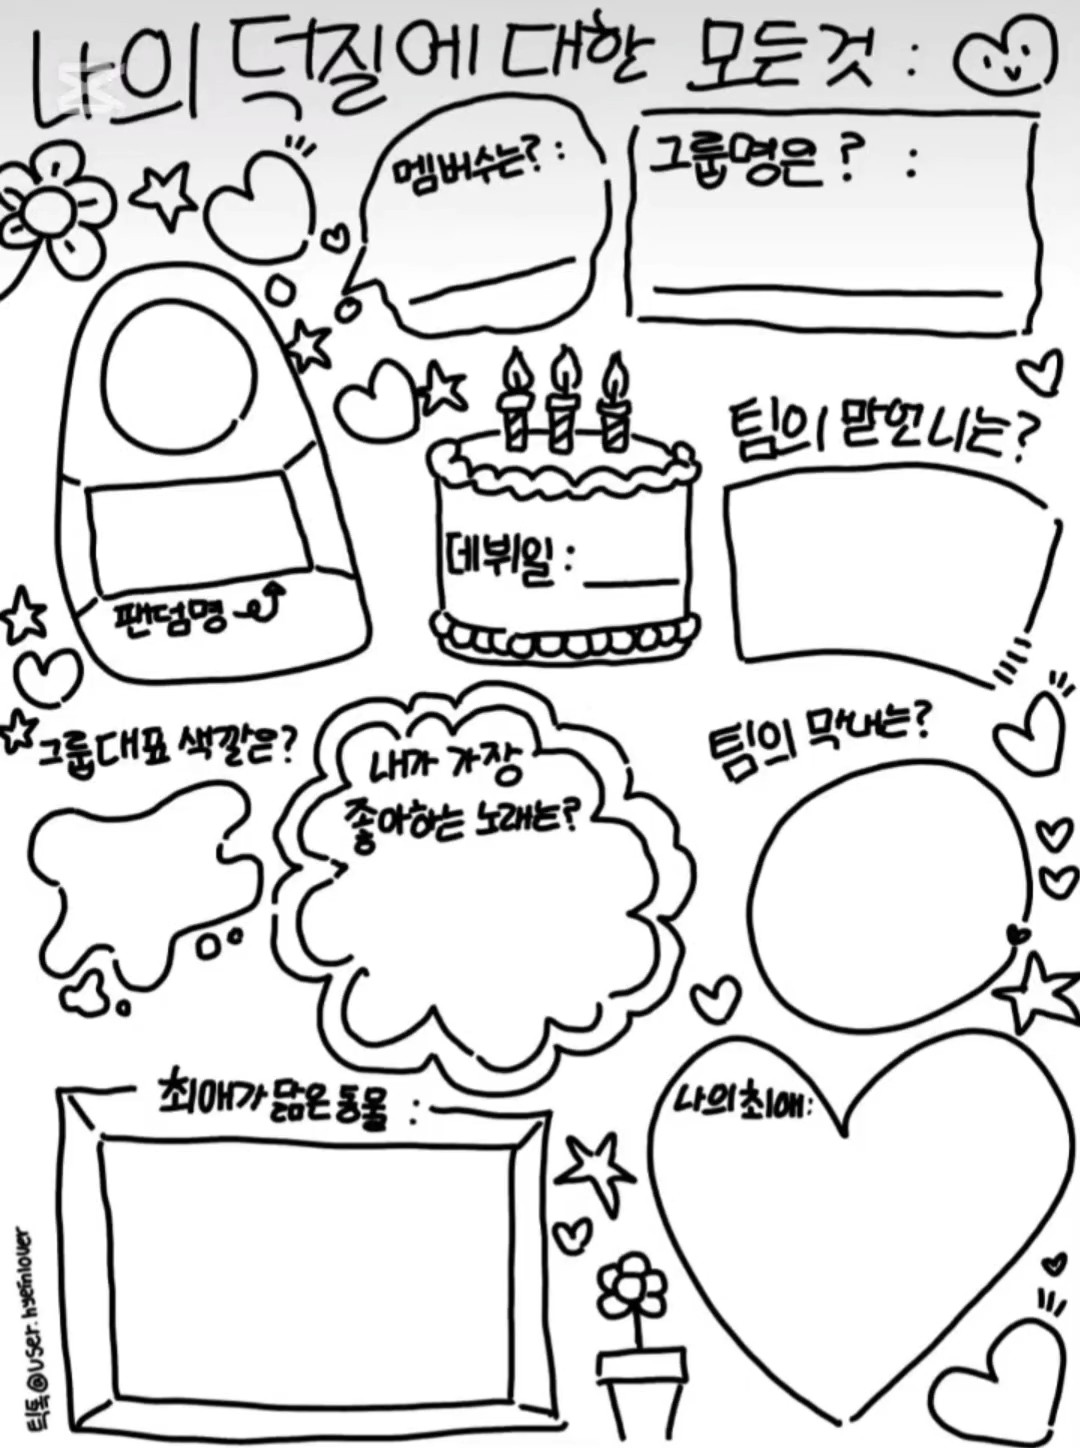 나의 덕질에 대한 모든것 :
멤버수는? :
그룹명은? :
팀의 맏언니는?
데뷔일 :
팬덤명
그룹대표 색깔은?
내가 가장
좋아하는 노래는?
팀의 막내는?
최애가 닮은 동물 :
나의 최애:
틱톡@user.hyeinlover